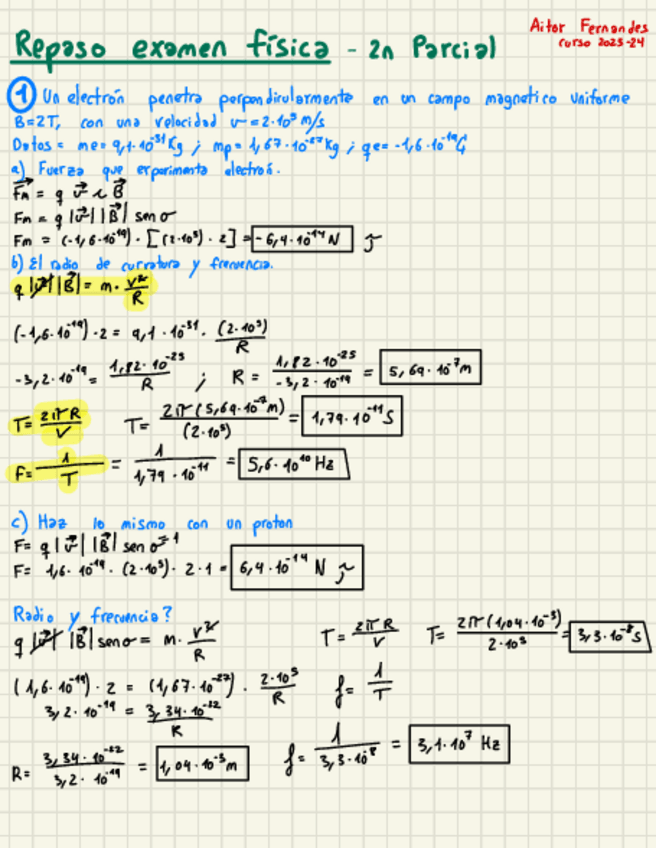 Aitor Fernandes
curso 2023-24
Repaso examen física - 2n Parcial
1 Un electrón penetra perpendirularmente en un campo magnetico uniforme
B=2T, con una velocidad v=2·10³ m/s
Datos = me=9,1·10⁻³¹Kg ; mp=1,67·10⁻²⁷Kg ; qe=-1,6·10⁻¹⁹C
a) Fuerza que experimenta electrón.
F⃗m = q v⃗ x B⃗
Fm = q |v⃗| |B⃗| sen σ
Fm = (-1,6·10⁻¹⁹) · [(2·10³) · 2] = -6,4·10⁻¹⁴ N ĵ
b) El radio de curvatura y frecuencia.
q |v⃗| |B⃗| = m · v²/R
(-1,6·10⁻¹⁹) · 2 = 9,1·10⁻³¹ · (2·10³)/R
-3,2·10⁻¹⁹ = 1,82·10⁻²⁵/R ; R = 1,82·10⁻²⁵/-3,2·10⁻¹⁹ = 5,69·10⁻⁷m
T = 2πR/V T = 2π(5,69·10⁻⁷m)/(2·10³) = 1,79·10⁻¹¹ S
F = 1/T = 1/1,79·10⁻¹¹ = 5,6·10¹⁰ Hz
c) Haz lo mismo con un proton
F = q |v⃗| |B⃗| sen σ=1
F = 1,6·10⁻¹⁹ · (2·10³) · 2·1 = 6,4·10⁻¹⁴ N ĵ
Radio y frecuencia?
q |v⃗| |B⃗| sen σ = m · v²/R T = 2πR/V T = 2π(1,04·10⁻³)/2·10³ = 3,3·10⁻⁸s
(1,6·10⁻¹⁹) · 2 = (1,67·10⁻²⁷) · 2·10³/R f = 1/T
3,2·10⁻¹⁹ = 3,34·10⁻²²/R
R = 3,34·10⁻²²/3,2·10⁻¹⁹ = 1,04·10⁻³m f = 1/3,3·10⁻⁸ = 3,1·10⁷ Hz